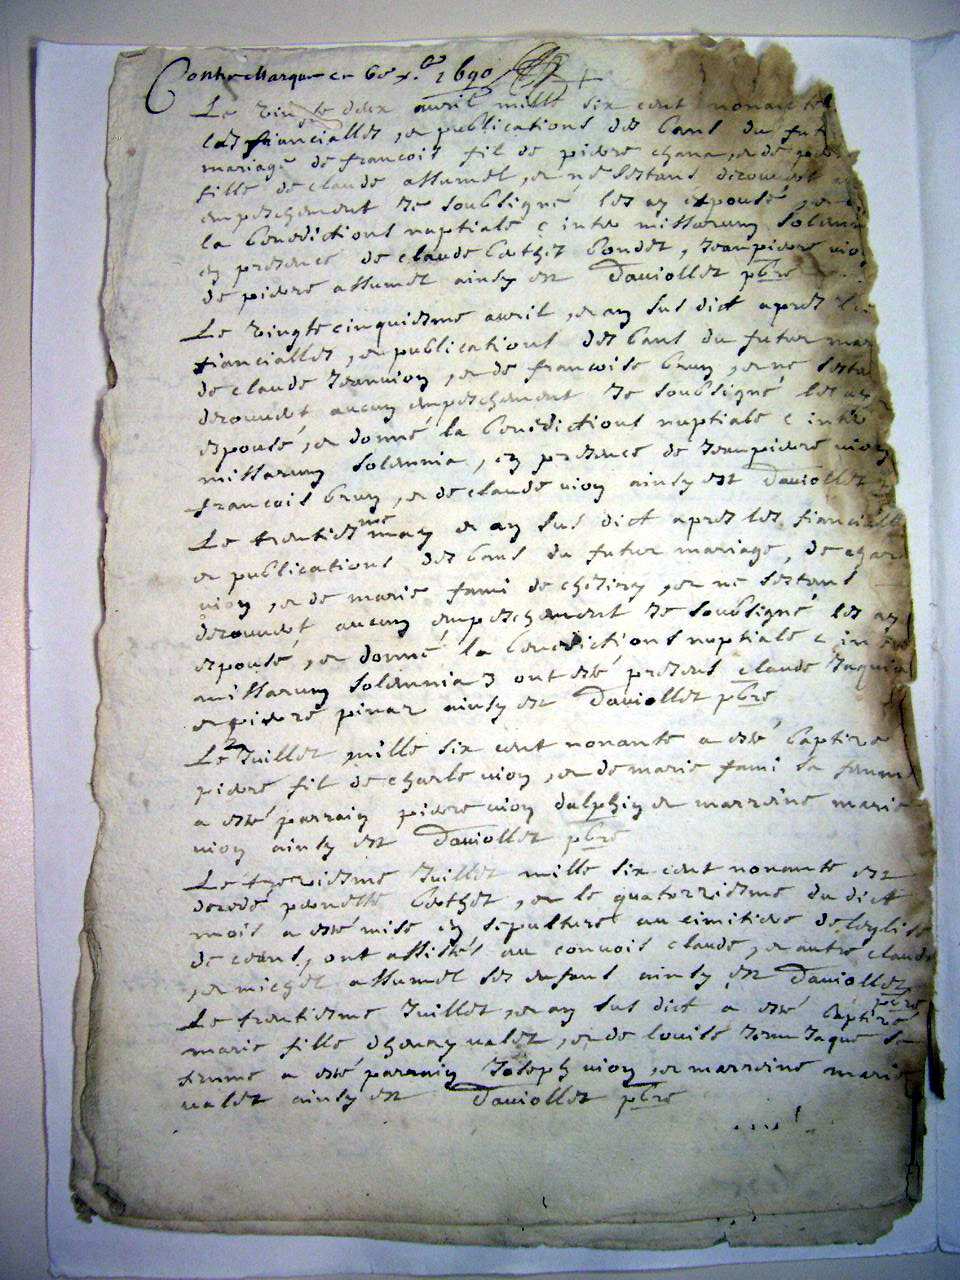 Contre Marque ce 6e x.bre 1690
Le vingte deux avril mille six cent nonante
les fiancialles ,et publications des bans du fut
mariage de francois fil de piere chana ,et de
fille de claude assumel ,et ne sestans decouvert
empeschement Je soubsigné les ay espousé ,et
la benedictions nuptiale c inter missarum Solem
en presence de claude Bochet Condet , Jeanpiere vio
de piere assumel ainsy est Daviollet pbre
Le vingte cinquiesme avril ,et an sus dict apres les
fiancialles ,et publications des bans du futur mar
de claude Jeanvion ,et de francoise brun ,et ne sesta
decouvert aucun empeschement Je soubsigné les ay
espousé ,et donné la benedictions nuptiale c inter
missarum Solemnia , en presence de Jeanpiere vion
francois brun ,et de claude vion ainsy est Daviollet
Le trentiesme may et an sus dict apres les fiancialle
et publications des bans du futur mariage, de
vion ,et de marie fami de chesiry ,et ne sestans
decouvert aucun empeschement Je soubsigné les ay
espouse ,et donné la benedictions nuptiale c inter
missarum Solemnia ont esté presens claude Jaqui
et piere pinar ainsy est Daviollet pbre
Le 2 Juillet mille six cent nonante a esté baptize
piere fil de charle vion ,et de marie fami sa femme
a esté parrain piere vion dalphin et marreine marie
vion ainsy est Daviollet pbre
Le treziesme Juillet mille six cent nonante est
decedé pernette Bochet ,et le quatorziesme du dict
mois a esté mise en sepulture au cimitiere de leglise
de ceans, ont assistés au convois claude ,et autre claude
,et michel assumel ses enfans ainsy est Daviollet
pbre
Le trentiesme Juillet ,et an sus dict a esté baptizé
marie fille dhenry valet ,et de louise Jean Jaque sa
femme a esté parrain Joseph vion ,et marreine marie
valet ainsy est Daviollet pbre